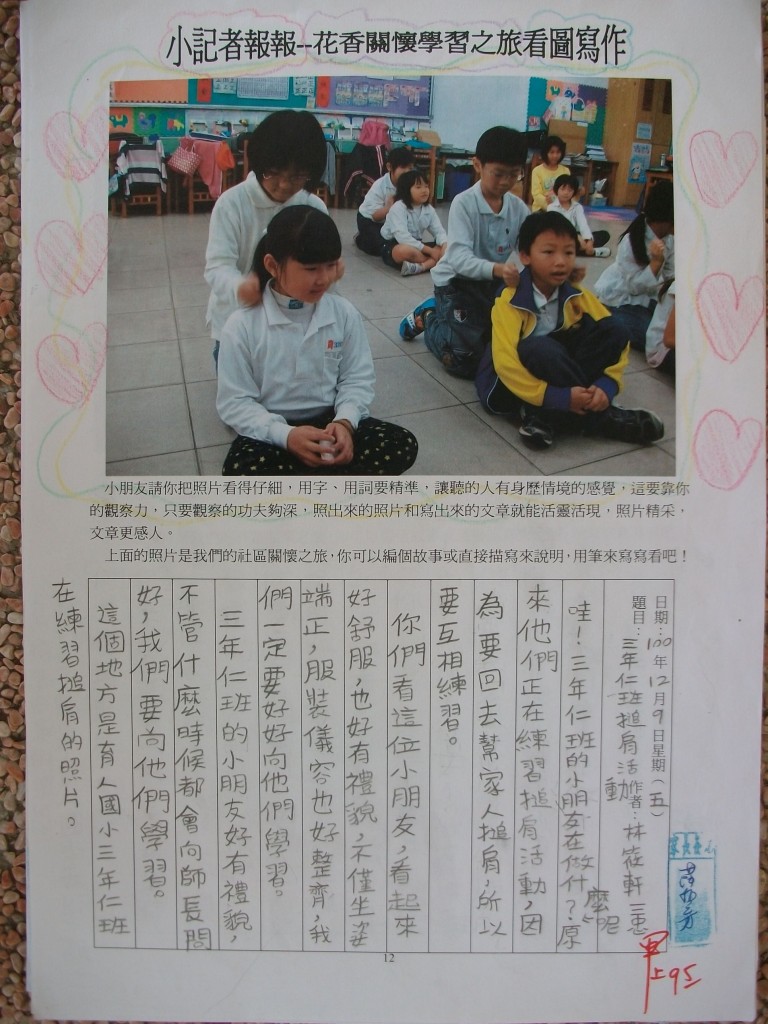 小記者報報--花香關懷學習之旅看圖寫作
小朋友請你把照片看得仔細，用字、用詞要精準，讓聽的人有身歷情境的感覺，這要靠你
的觀察力，只要觀察的功夫夠深，照出來的照片和寫出來的文章就能活靈活現，照片精采，
文章更感人。
上面的照片是我們的社區關懷之旅，你可以編個故事或直接描寫來說明，用筆來寫寫看吧！
日期：100年12月9日星期（五）
題目：三年仁班搥肩活動 作者：林筱軒
哇！三年仁班的小朋友在做什麼呢？原
來他們正在練習搥肩活動，因
為要回去幫家人搥肩，所以
要互相練習。
你們看這位小朋友，看起來
好舒服，也好有禮貌，不僅坐姿
端正，服裝儀容也好整齊，我
們一定要好好向他們學習。
三年仁班的小朋友好有禮貌，
不管什麼時候都會向師長問
好，我們要向他們學習。
這個地方是育人國小三年仁班
在練習搥肩的照片。
12
甲上95